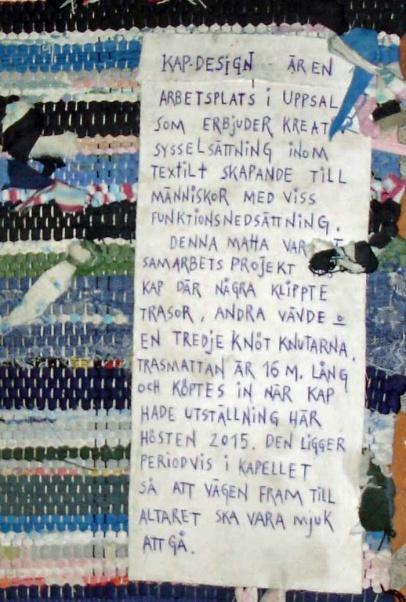 KAP-DESIGN - ÄR EN
ARBETSPLATS i UPPSAL
SOM ERBJUDER KREAT
SYSSELSÄTTNING INOM
TEXTILT SKAPANDE TILL
MÄNNISKOR MED VISS
FUNKTIONSNEDSÄTTNING.
DENNA MATTA VAR T
SAMARBETS PROJEKT
KAP DÄR NÅGRA KLIPPTE
TRASOR, ANDRA VÄVDE o
EN TREDJE KNÖT KNUTARNA.
TRASMATTAN ÄR 16 M. LÅNG
OCH KÖPTES IN NÄR KAP
HADE UTSTÄLLNING HÄR
HÖSTEN 2015. DEN LIGGER
PERIODVIS i KAPELLET
SÅ ATT VÄGEN FRAM TILL
ALTARET SKA VARA MJUK
ATT GÅ.